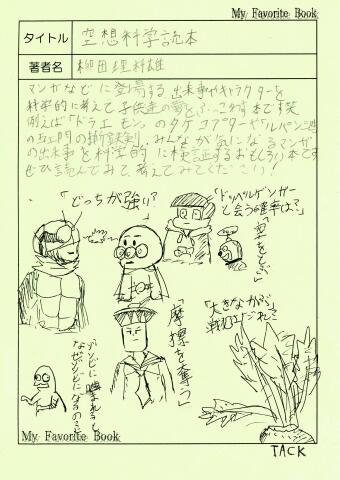 My Favorite Book
タイトル 空想科学読本
著者名 柳田理科雄
マンガなどに登場する出来事やキャラクターを
科学的に考えて子供達の夢をぶっこわす本です笑
例えば「ドラエモン」のタケコプターや「ルパン三世」
の五ェ門の斬鉄剣、みんなが気になるマンガ
の出来事を科学的に検証するおもしろい本です
ぜひ読んでみて考えてみてください!
「どっちが強い?」
「ドッペルゲンガー
と会う確率は?」
「空をとぶ」
「摩擦を奪う」
「大きなかぶ」
ゾンビに噛まれると
なぜゾンビになるのか?
My Favorite Book
TACK